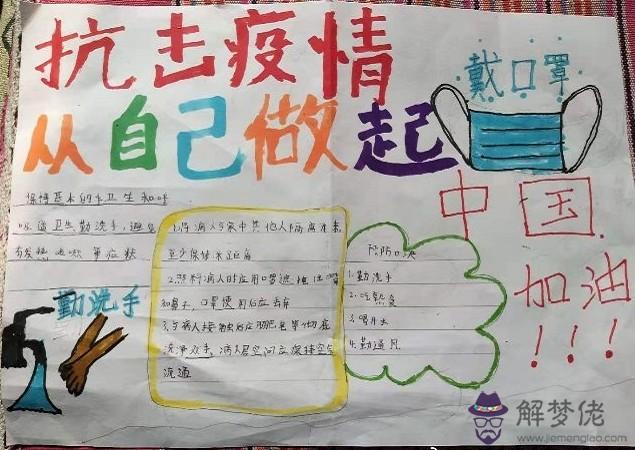 抗击疫情
从自己做起
戴口罩
中国
加油
!!!
保持基本的手卫生和呼
吸道卫生勤洗手,避免
有发热咳嗽等症状
勤洗手
1.将病人与家中其他人隔离开来
至少保持1米距离
2.照料病人时应用口罩遮掩住口嘴
和鼻子,口罩使用后应丢弃
3.与病人接触后应用肥皂等彻底
洗净双手,病人居空间应保持空气
流通
预防口诀
1.勤洗手
2.吃熟食
3.喝开水
4.勤通风
解梦佬
www.jiemenglao.com